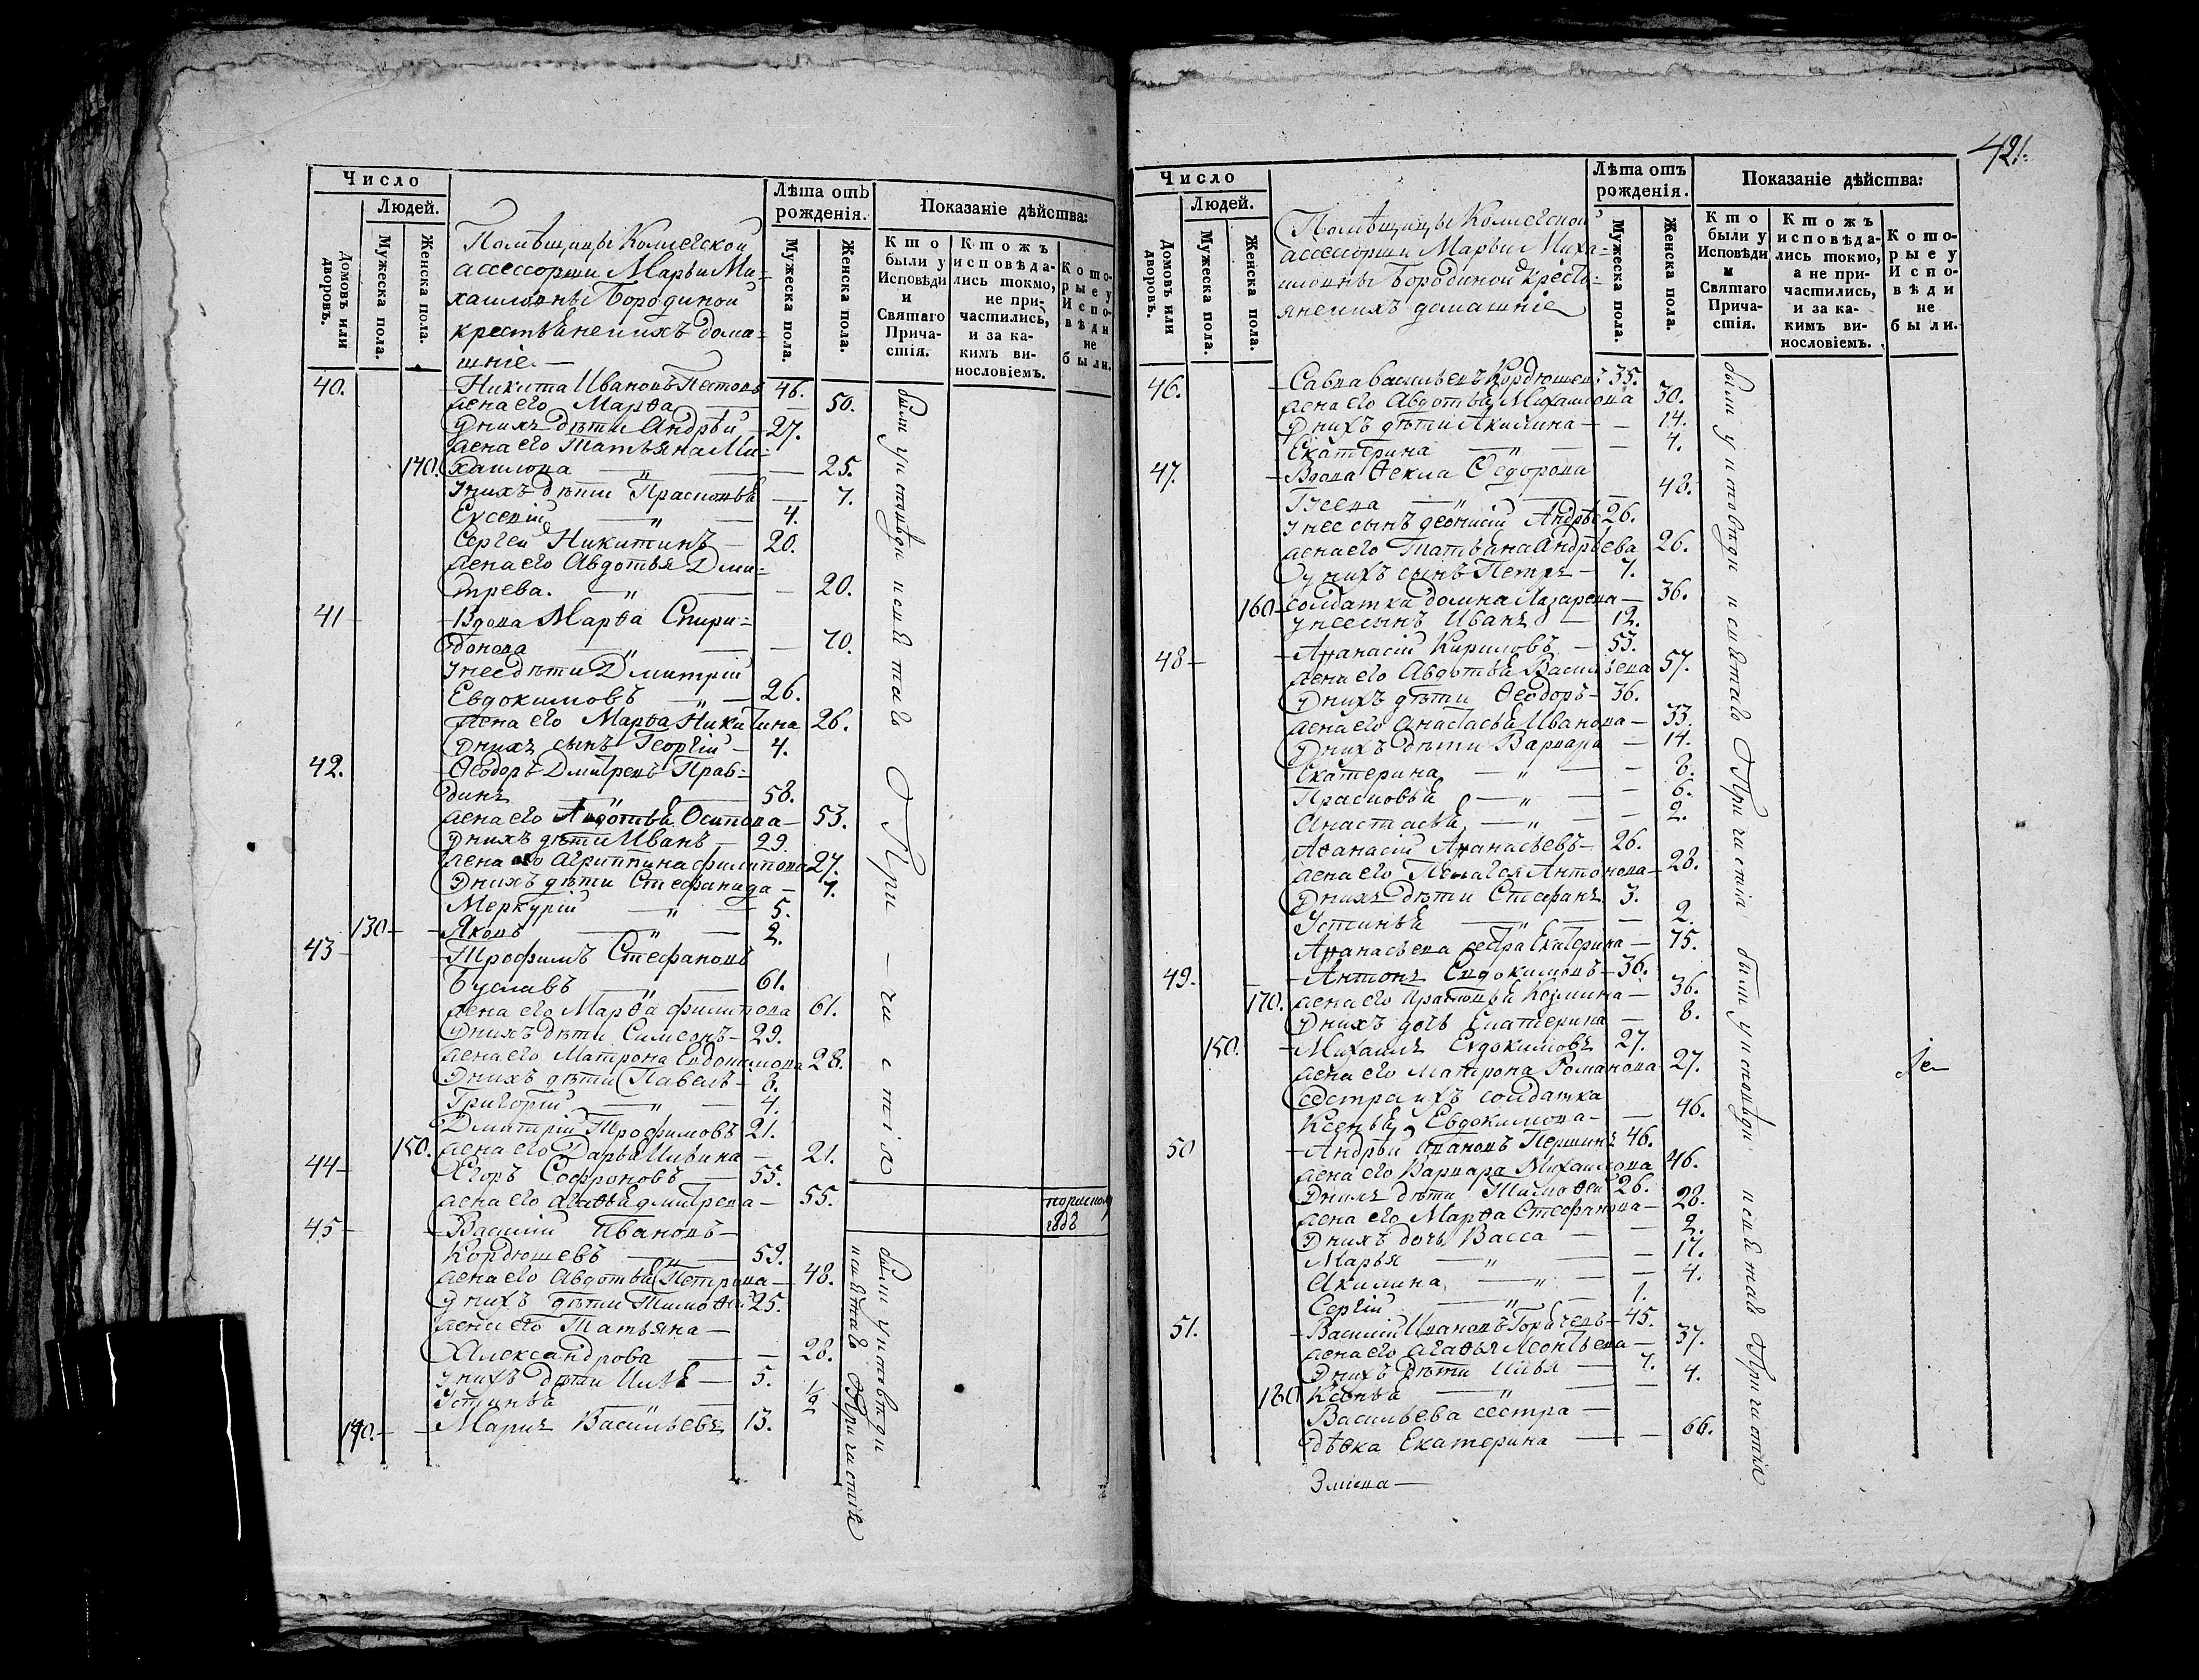 Число
Людей.
Домовъ или дворовъ.
Мужеска пола.
Женска пола.
Лѣта отъ рожденія.
Мужеска пола.
Женска пола.
Показаніе дѣйства:
Кто были у Исповѣди и Святаго Причастія.
Ктожъ исповѣдались токмо, не причастились, и за какимъ винословіемъ.
Которые у Исповѣди не были.
Помѣщицы Колежской
ассесорши Марьи Ми-
хаиловны Бородиной
крестьяне и ихъ дома-
шніе. —
40. Никита Ивановъ 46.
жена его Марѳа — 50.
у нихъ дѣти Андрѣй — 27.
жена его Татьяна Ми-
140. хаилова — 25.
у нихъ дѣти Прасковья — 7.
Евсевій — 4.
Сергей Никитинъ — 20.
жена его Авдотья Дми-
трева. — 20.
41 Вдова Марѳа Спири-
донова — 70.
у нее дѣти Дмитрій
Евдокимовъ — 26.
жена его Марѳа Никитина 26.
у нихъ сынъ Георгій — 4.
42. Ѳеодоръ Дмитревъ Прав-
динъ — 58.
жена его Авдотья Осипова — 53.
у нихъ дѣти Иванъ — 29.
жена его Агриппина Филипова 27.
у нихъ дѣти Стефанида — 7.
Меркурій — 5.
130 Яковъ — 2.
43 Трофимъ Стефановъ
Буслаевъ — 61.
жена его Марѳа Филипова 61.
у нихъ дѣти Симеонъ — 29.
жена его Матрона Евдокимова 28.
у нихъ дѣти Павелъ — 6.
Григорій — 4.
Дмитрій Трофимовъ 21.
150. жена его Дарья Ильина — 21.
44 Егоръ Софроновъ — 55.
жена его Агаѳья Дмитрева — 55.
45 Василій Ивановъ —
Кордюшевъ — 59.
жена его Авдотья Петрова — 48.
у нихъ дѣти Тимоѳей 25.
жена его Татьяна —
Александрова — 28.
у нихъ дѣти Илья — 5.
Устинья — 1/2
140. Маркъ Васильевъ 13.
были у исповѣди и свѣтаго Причастія
были у исповѣди и свѣтаго Причастія
421.
Число
Людей.
Домовъ или дворовъ.
Мужеска пола.
Женска пола.
Лѣта отъ рожденія.
Мужеска пола.
Женска пола.
Показаніе дѣйства:
Кто были у Исповѣди и Святаго Причастія.
Ктожъ исповѣдались токмо, а не причастились, и за какимъ винословіемъ.
Которые у Исповѣди не были.
Помѣщицы Колежской
ассесорши Марьи Миха-
иловны Бородиной крестья-
яне и ихъ домашніе
46. Савва Васильевъ Кордюшевъ 35.
жена его Авдотья Михаилова 30.
у нихъ дѣти Акилина — 14.
Екатерина — 4.
47. Вдова Ѳекла Ѳедорова
48.
у нее сынъ Деонисій Андрѣе 26.
жена его Татьяна Андрѣева 26.
у нихъ сынъ Петръ — 7.
160 солдатка Домна Лазарева — 36.
у нее сынъ Иванъ — 12.
48 Аѳанасій Кириловъ — 53.
жена его Авдотья Васильева 57.
у нихъ дѣти Ѳеодоръ — 36.
жена его Анастасья Иванова — 33.
у нихъ дѣти Варвара — 14.
Екатерина — 8.
Прасковья — 6.
Анастасья — 2.
Аѳанасій Аѳанасьевъ — 26.
жена его Пелагея Антонова — 28.
у нихъ дѣти Стефанъ 3.
Устинья — 2.
Аѳанасьева сестра Екатерина — 75.
49. Антонъ Евдокимовъ — 36.
170. жена его Прасковья Козмина — 36.
у нихъ дочь Екатерина — 8.
150. Михаилъ Евдокимовъ 27.
жена его Матрона Романова 27.
сестра ихъ солдатка
Ксенья Евдокимова — 46.
50 Андрѣй Ивановъ Першинъ 46.
жена его Варвара Михаилова 46.
у нихъ дѣти Тимоѳей 26.
жена его Марѳа Стефанова — 28.
у нихъ дочь Васса — 2.
Марья — 17.
Акилина — 4.
Сергій — 1.
51. Василій Ивановъ Горячевъ 45.
жена его Агаѳья Леонтьева — 37.
у нихъ дѣти Илья — 7.
180 Ксенья — 4.
Васильева сестра —
дѣвка Екатерина — 66.
были у исповѣди и свѣтаго Причастія
были у исповѣди и свѣтаго Причастія